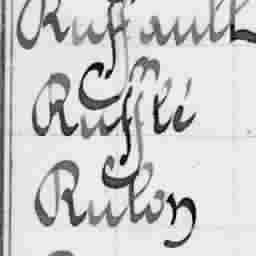 Ruffault
Ruffli
Rulon